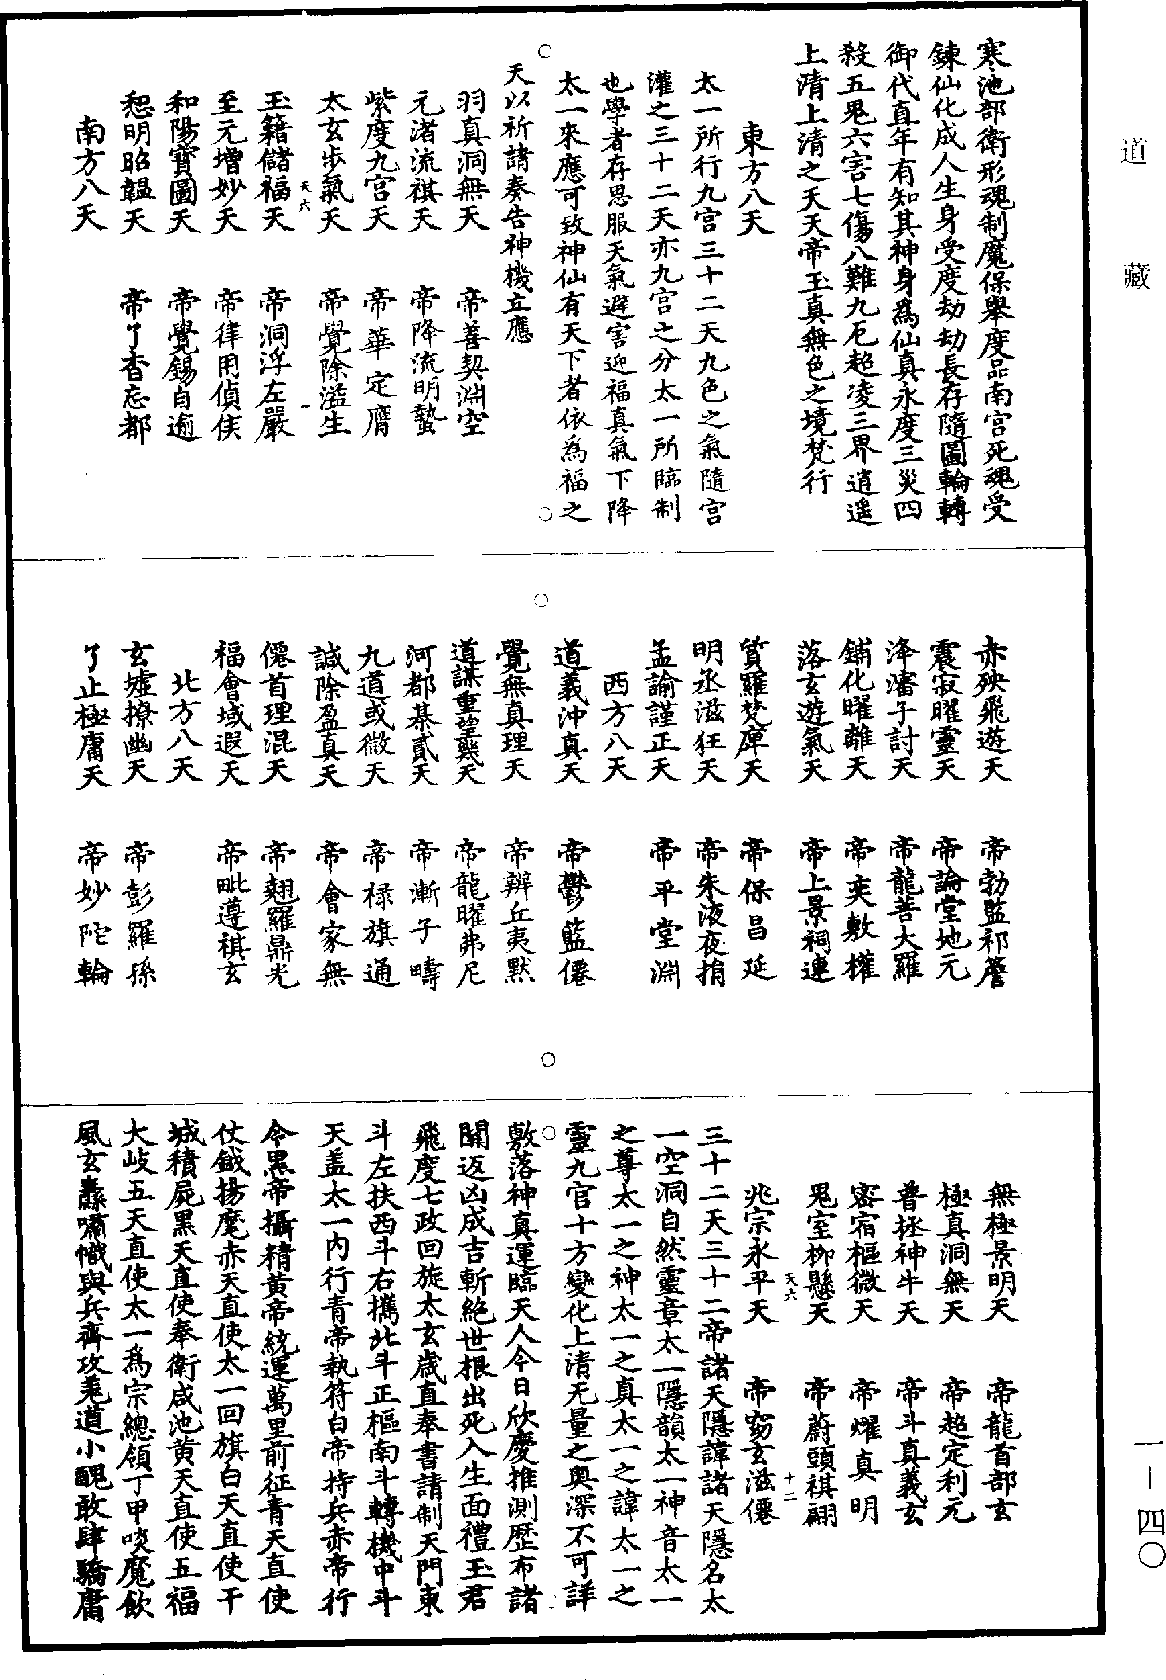 道藏
寒池部衛形魂制魔保舉度品南宮死魂受
鍊仙化成人生身受度劫劫長存隨圖輪轉
御代直年有知其神身為仙真永度三災四
殺五鬼六害七傷八難九厄超凌三界逍遥
上清上清之天天帝玉真無色之境梵行
東方八天
太一所行九宮三十二天九色之氣隨宮
灌之三十二天亦九宮之分太一所臨制
也學者存思服天氣避害迎福真氣下降
太一來應可致神仙有天下者依為福之
天以祈請奏告神機立應
羽真洞無天 帝善契淵空
元渚流祺天 帝降流明蟄
紫度九宮天 帝華定膺
太玄步氣天 帝覺除滋生
玉籍儲福天 帝洞浮左嚴
天六
至元增妙天 帝律用偵侯
和陽寳圖天 帝覺錫自逾
恕明昭韞天 帝了香忘都
南方八天
赤殃飛遊天 帝勃監祁詹
震寂曜靈天 帝論堂地元
洚瀋子討天 帝龍菩大羅
鋪化曜離天 帝奕敷權
落玄遊氣天 帝上景祠連
質羅梵庫天 帝保昌延
明丞滋狂天 帝朱液夜捐
孟諭謹正天 帝平堂淵
西方八天
道義沖真天 帝鬱藍僊
覺無真理天 帝辦丘夷默
道謀重望幾天 帝龍曜弗尼
河都綦貳天 帝漸子疇
九道或微天 帝禄旗通
誠除盈真天 帝會家無
僊首理混天 帝翹羅鼎光
福會域遐天 帝毗遵祺玄
北方八天
玄墟撩幽天 帝彭羅孫
了止極庸天 帝妙陀輪
無極景明天 帝龍首部玄
極真洞無天 帝超定利元
普拯神牛天 帝斗真義玄
密宿樞微天 帝燿真明
鬼室柳懸天 帝蔚頭祺翮
天六
兆宗永平天 帝窈玄滋僊
十二
三十二天三十二帝諸天隱諱諸天隱名太
一空洞自然靈章太一隱韻太一神音太一
之尊太一之神太一之真太一之諱太一之
靈九官十方變化上清无量之奥深不可詳
敷落神真運臨天人今日欣慶推測歷布諸
關返凶成吉斬絶世根出死入生面禮玉君
飛度七政回旋太玄歲直奉書請制天門東
斗左扶西斗右攜北斗正樞南斗轉機中斗
天盖太一内行青帝執符白帝持兵赤帝行
令黑帝攝精黄帝統運萬里前征青天直使
仗鉞揚麾赤天直使太一回旗白天直使干
城積屍黑天直使奉衛咸池黄天直使五福
大岐五天直使太一為宗總領丁甲啖魔飲
風玄纛嘯幟與兵齊攻鬼道小醜敢肆驕庸
一－四〇